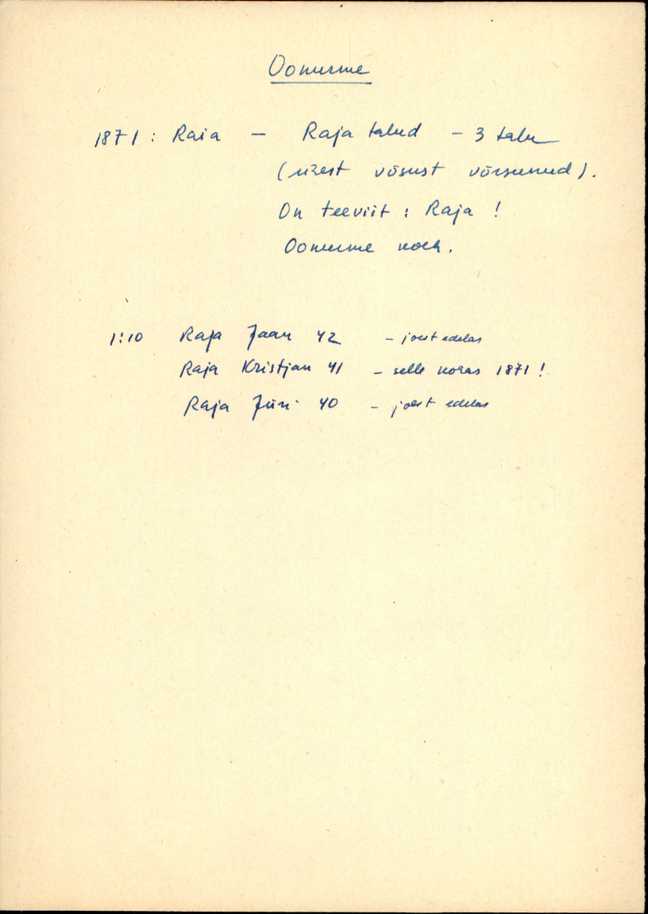 Oonurme
1871: Raia — Raja talud - 3 talu
(ühest võsust võrsunud).
On teeviit: Raja!
Oonurme
1:10 Raja Jaan 42 - jõest edelas
Raja Kristjan 41 - selle koras 1871!
Raja Jüri 40 - jõest edelas